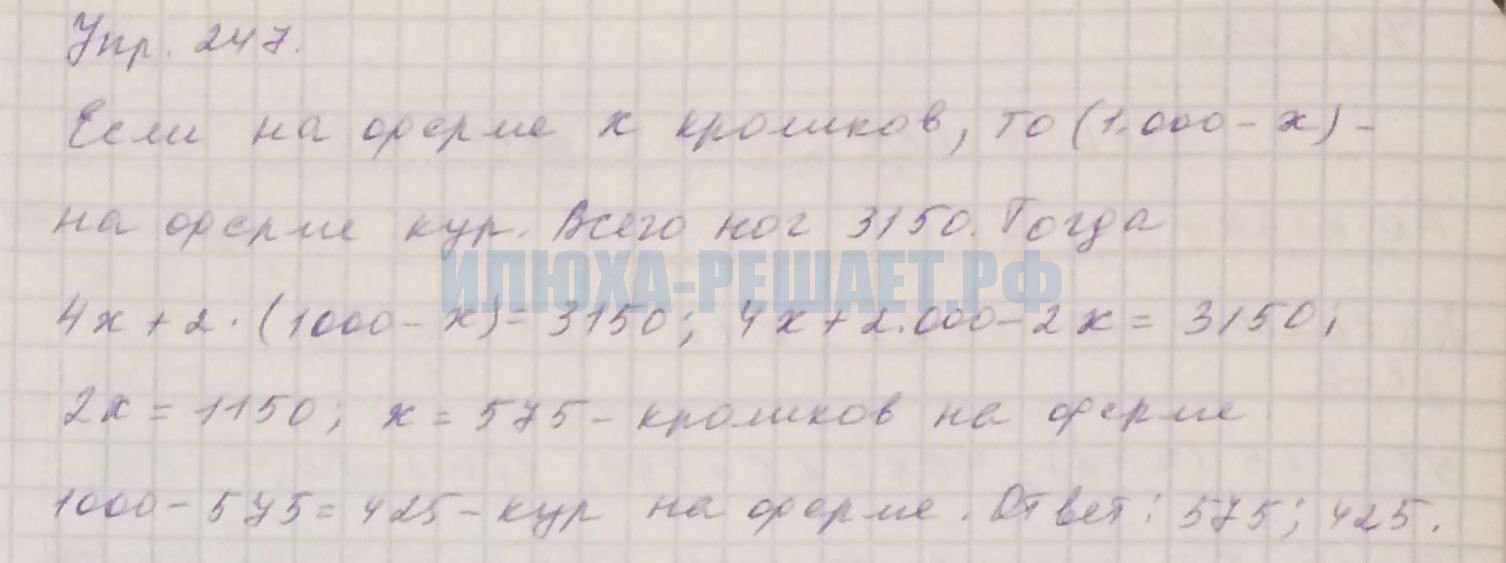 Упр. 247.
Если на ферме x кроликов, то (1.000 - x) -
на ферме кур. Всего ног 3150. Тогда
ИЛЮХА-РЕШАЕТ.РФ
4x + 2 · (1000 - x) = 3150; 4x + 2.000 - 2x = 3150;
2x = 1150; x = 575 - кроликов на ферме
1000 - 575 = 425 - кур на ферме. Ответ: 575; 425.